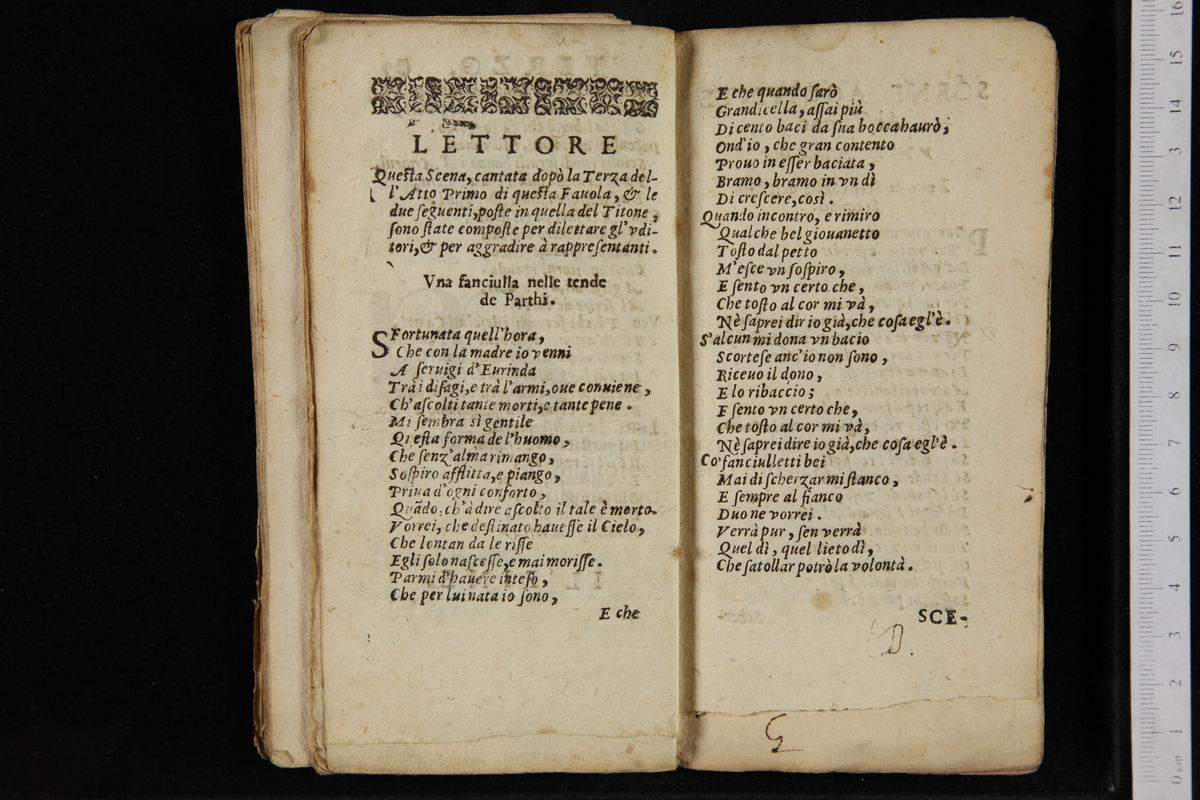 LETTORE
Questa Scena, cantata dopò la Terza del-
l'Atto Primo di questa Fauola, & le
due seguenti, poste in quella del Titone,
sono state composte per dilettare gl'vdi-
tori, & per aggradire à rappresentanti.
Vna fanciulla nelle tende
de Parthi.
SFortunata quell'hora,
Che con la madre io venni
A seruigi d'Eurinda
Trà i disagi, e trà l'armi, oue conuiene,
Ch'ascolti tante morti, e tante pene.
Mi sembra sì gentile
Questa forma de l'huomo,
Che senz'alma rimango,
Sospiro afflitta, e piango,
Priua d'ogni conforto,
Quãdo, ch'à dire ascolto il tale è morto.
Vorrei, che destinato hauesse il Cielo,
Che lontan da le risse
Egli solo nascesse, e mai morisse.
Parmi d'hauere inteso,
Che per lui nata io sono,
E che
E che quando sarò
Grandicella, assai più
Di cento baci da sua bocca haurò;
Ond'io, che gran contento
Prouo in esser baciata,
Bramo, bramo in vn dì
Di crescere, così.
Quando incontro, e rimiro
Qualche bel giouanetto
Tosto dal petto
M'esce vn sospiro,
E sento vn certo che,
Che tosto al cor mi và,
Nè saprei dir io già, che cosa egl'è.
S'alcun mi dona vn bacio
Scortese anc'io non sono,
Riceuo il dono,
E lo ribaccio;
E sento vn certo che,
Che tosto al cor mi và,
Nè saprei dire io già, che cosa egl'è.
Co' fanciulletti bei
Mai di scherzar mi stanco,
E sempre al fianco
Duo ne vorrei.
Verrà pur, sen verrà
Quel dì, quel lieto dì,
Che satollar potrò la volontà.
SCE-
D.
G